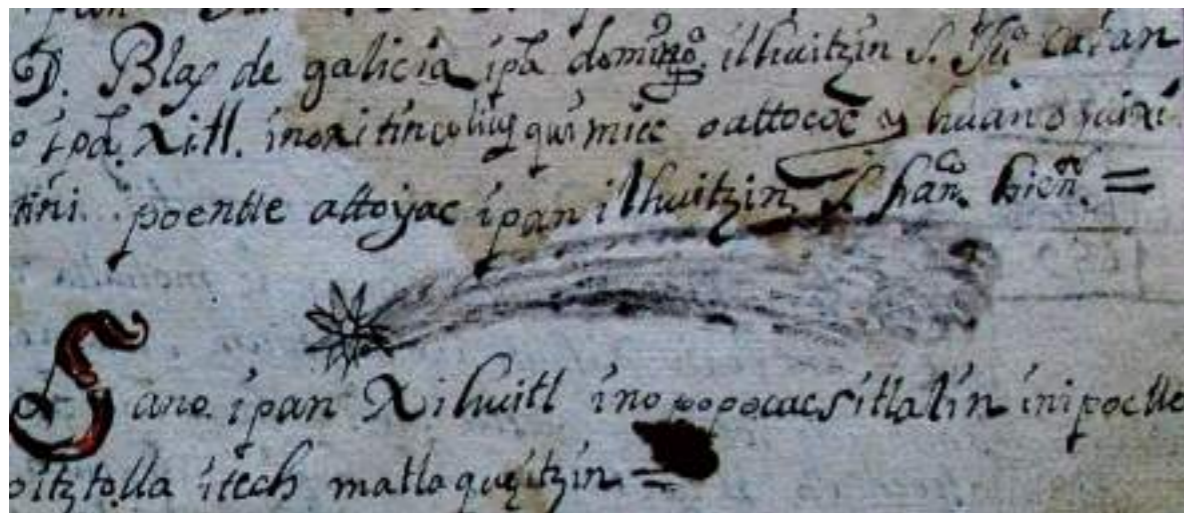 D. Blas de galicia ipā domingo. ilhuitzin S. Juº
o ipā. Xitl. inoxitin quimicc oattococ y huan oxixi
tini. ipoentle attoyac ipan ilhuitzin S. fran.co bien. =
Sano. ipan Xihuitl inopopocac sitlalin inipoctle
oitztolla itech matlaqueitzin =